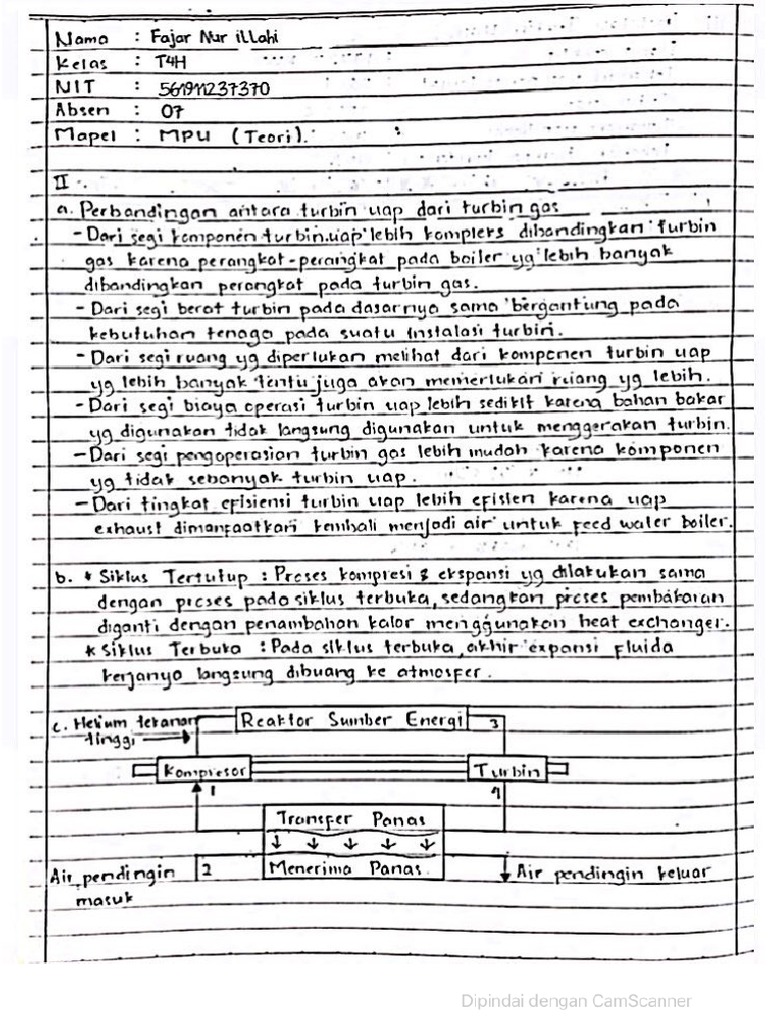 Nama : Fajar Nur illahi
Kelas : T4H
NIT : 561911237370
Absen : 07
Mapel : MPU (Teori).
II
a. Perbandingan antara turbin uap dari turbin gas
- Dari segi komponen turbin uap lebih kompleks dibandingkan turbin
gas karena perangkat-perangkat pada boiler yg lebih banyak
dibandingkan perangkat pada turbin gas.
- Dari segi berat turbin pada dasarnya sama bergantung pada
kebutuhan tenaga pada suatu instalasi turbin.
- Dari segi ruang yg diperlukan melihat dari komponen turbin uap
yg lebih banyak tentu juga akan memerlukan ruang yg lebih.
- Dari segi biaya operasi turbin uap lebih sedikit karena bahan bakar
yg digunakan tidak langsung digunakan untuk menggerakan turbin.
- Dari segi pengoperasian turbin gas lebih mudah karena komponen
yg tidak sebanyak turbin uap.
- Dari tingkat efisiensi turbin uap lebih efisien karena uap
exhaust dimanfaatkan kembali menjadi air untuk feed water boiler.
b. * Siklus Tertutup : Proses kompresi & ekspansi yg dilakukan sama
dengan proses pada siklus terbuka, sedangkan proses pembakaran
diganti dengan penambahan kalor menggunakan heat exchanger.
* Siklus Terbuka : Pada siklus terbuka, akhir expansi fluida
kerjanya langsung dibuang ke atmosfer.
c. Helium tekanan
tinggi
Reaktor Sumber Energi
3
Kompresor
Turbin
1
4
Transfer Panas
Menerima Panas
Air pendingin
masuk
2
Air pendingin keluar
Dipindai dengan CamScanner